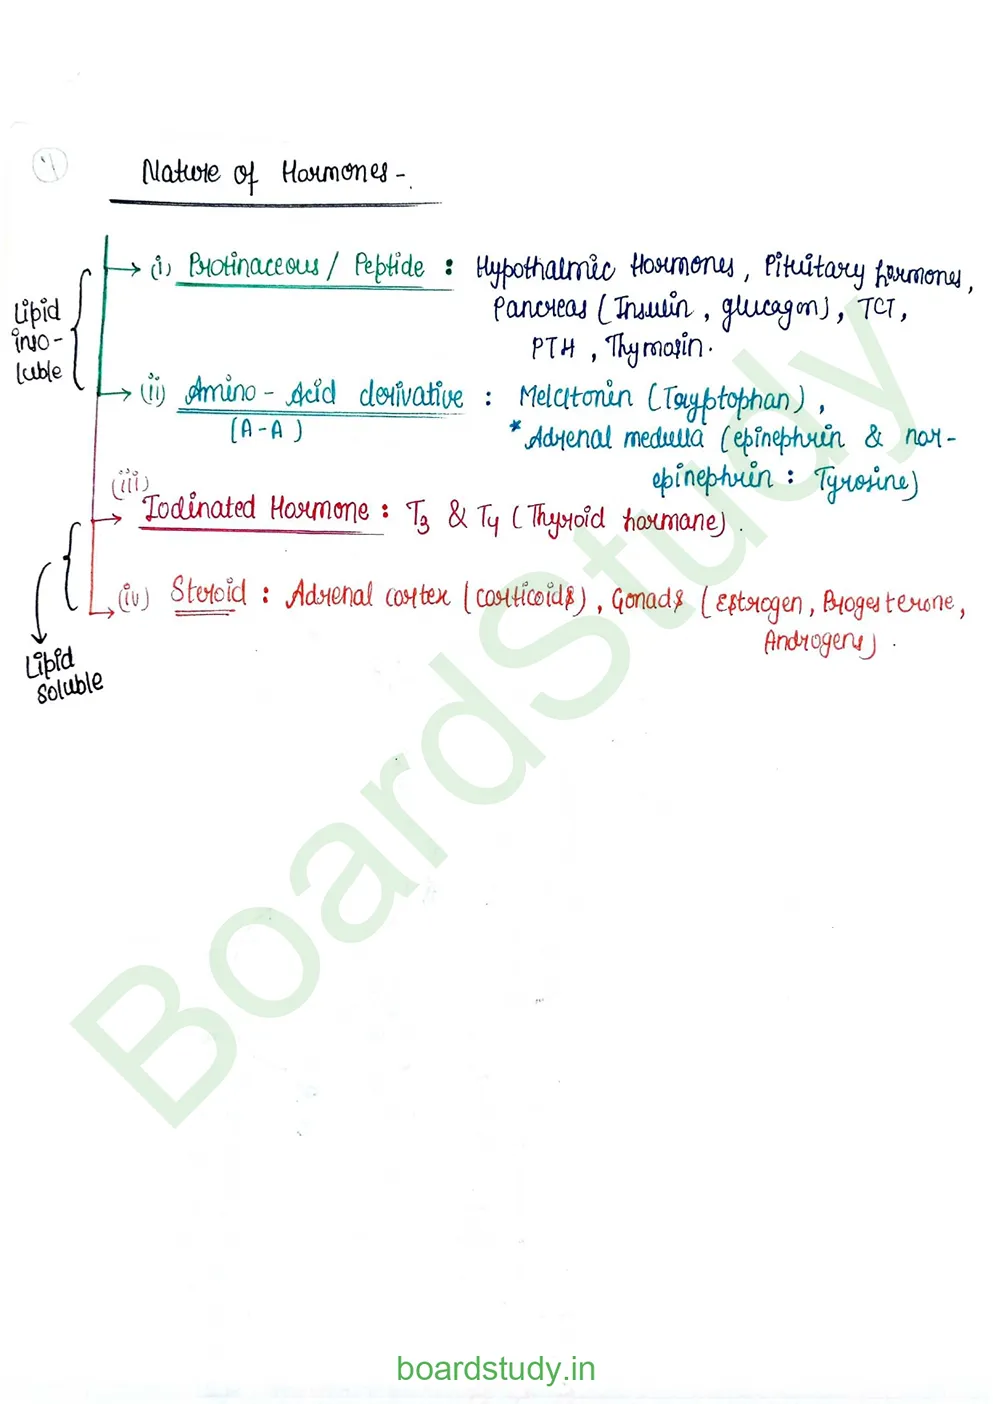 4
Nature of Hormones -
(i) Protinaceous / Peptide : Hypothalmic Hormones, Pituitary hormones,
Pancreas (Insulin, glucagon), TCT,
PTH, Thymosin.
Lipid
inso-
luble
(ii) Amino - Acid derivative : Melatonin (Tryptophan),
(A-A)
* Adrenal medulla (epinephrin & nor-
epinephrin : Tyrosine)
(iii)
Iodinated Hormone : T3 & T4 (Thyroid hormane).
(iv) Steroid : Adrenal cortex (corticoids), Gonads (Estrogen, Progesterone,
Androgens).
Lipid
soluble
BoardStudy
boardstudy.in